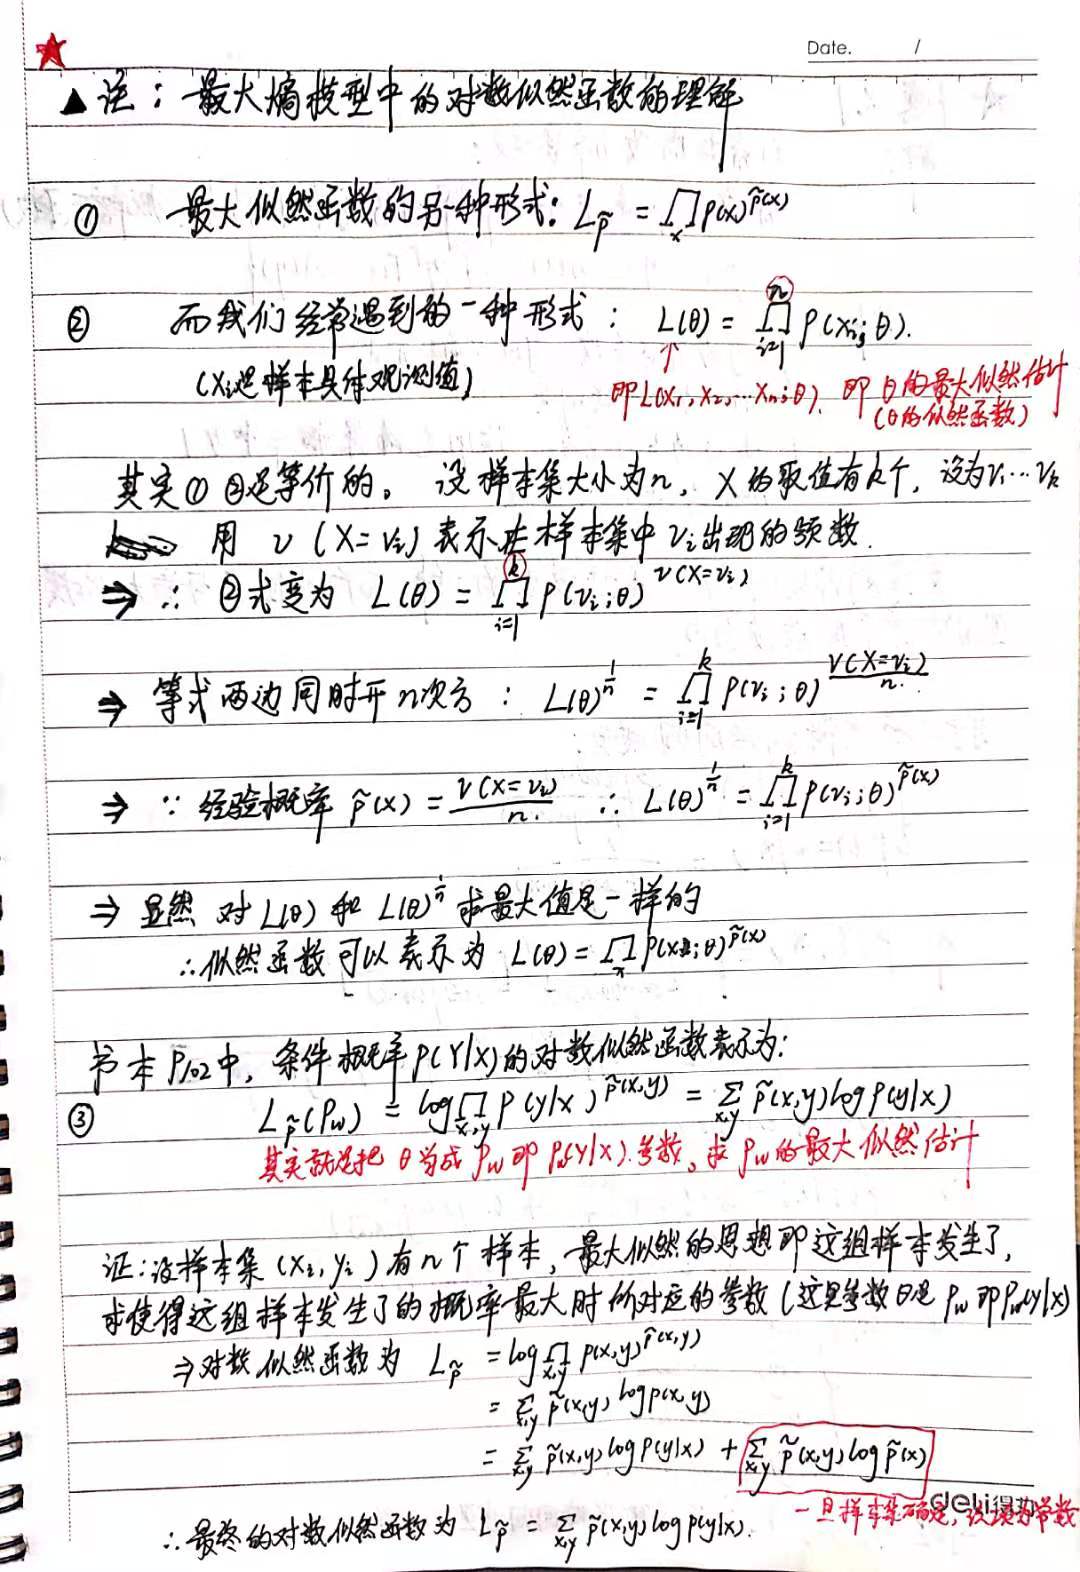 Date. /
▲ 注：最大熵模型中的对数似然函数的理解
① 最大似然函数的另一种形式：L_p̃ = ∏_x p(x)^p̃(x)
② 而我们经常遇到的一种形式：L(θ) = ∏_{i=1}^n p(x_i;θ).
(x_i是样本具体观测值)
↑
即L(x₁,x₂,…x_n;θ). 即θ的最大似然估计
(θ的似然函数)
其实①②是等价的。设样本集大小为n，X的取值有k个，设为v₁…v_k
用 v(X=v_i)表示在样本集中v_i出现的频数.
⇒ ∴ ②式变为 L(θ) = ∏_{i=1}^k p(v_i;θ)^{v(X=v_i)}
⇒ 等式两边同时开n次方：L(θ)^{1/n} = ∏_{i=1}^k p(v_i;θ)^{v(X=v_i)/n}
⇒ ∵ 经验概率 p̃(x) = v(X=v_i)/n ∴ L(θ)^{1/n} = ∏_{i=1}^k p(v_i;θ)^{p̃(x)}
⇒ 显然 对L(θ)和L(θ)^{1/n}求最大值是一样的
∴似然函数可以表示为 L(θ) = ∏_x p(x;θ)^{p̃(x)}
书本P102中，条件概率P(Y|X)的对数似然函数表示为：
③ L_p̃(P_w) = log∏_{x,y} P(y|x)^{p̃(x,y)} = Σ_{x,y} p̃(x,y)logP(y|x)
其实就是把θ当成P_w即P_w(Y|X)参数。求P_w的最大似然估计
证：设样本集(x_i,y_i)有n个样本，最大似然的思想即这组样本发生了，
求使得这组样本发生了的概率最大时所对应的参数(这里参数θ是P_w即P_w(y|x)
⇒对数似然函数为 L_p̃ = log∏_{x,y} p(x,y)^{p̃(x,y)}
= Σ_{x,y} p̃(x,y) logp(x,y)
= Σ_{x,y} p̃(x,y)logP(y|x) + Σ_{x,y} p̃(x,y)logp̃(x)
一旦样本集确定，该项为常数
deli得力
∴最终的对数似然函数为 L_p̃ = Σ_{x,y} p̃(x,y)logp(y|x).